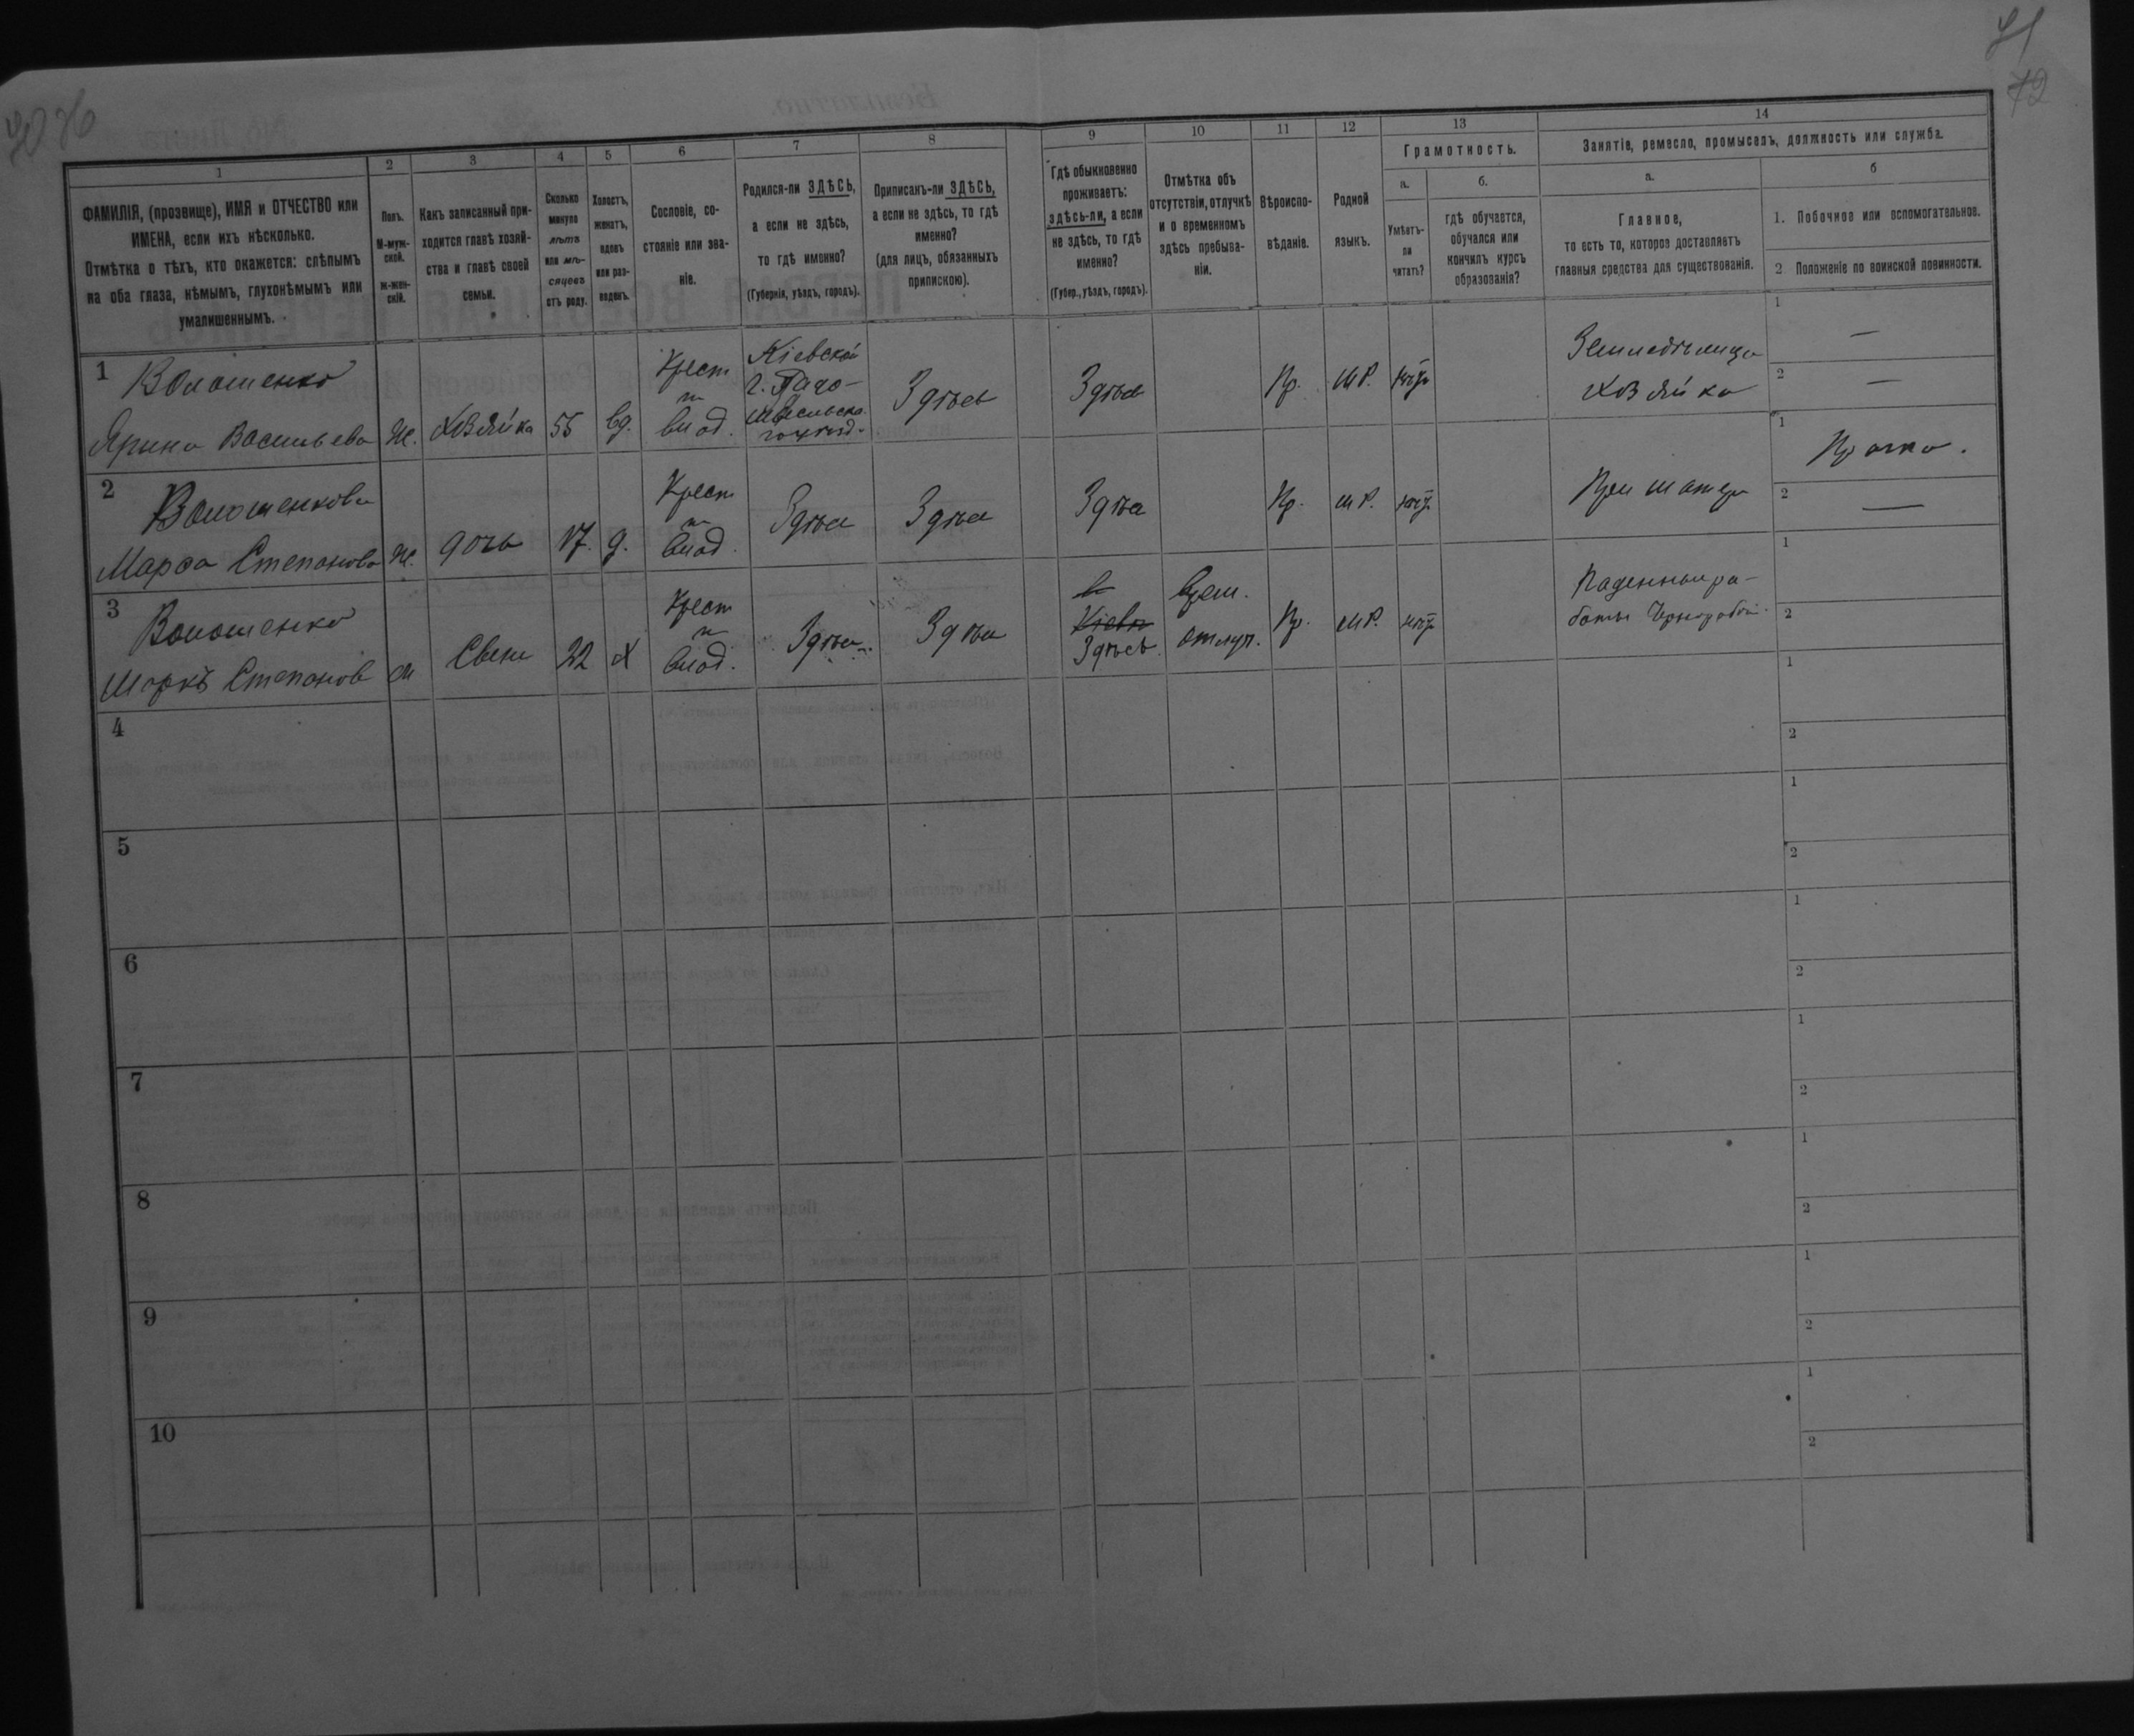 71
72
1
2
3
4
5
6
7
8
9
10
11
12
13
14
ФАМИЛІЯ, (прозвище), ИМЯ и ОТЧЕСТВО или
ИМЕНА, если ихъ нѣсколько.
Отмѣтка о тѣхъ, кто окажется: слѣпымъ
на оба глаза, нѣмымъ, глухонѣмымъ или
умалишеннымъ.
Полъ.
М-муж-
ской.
Ж-жен-
скій.
Какъ записанный при-
ходится главѣ хозяй-
ства и главѣ своей
семьи.
Сколько
минуло
лѣтъ
или мѣ-
сяцевъ
отъ роду.
Холостъ,
женатъ,
вдовъ
или раз-
веденъ.
Сословіе, со-
стояніе или зва-
ніе.
Родился-ли ЗДѢСЬ,
а если не здѣсь,
то гдѣ именно?
(Губернія, уѣздъ, городъ).
Приписанъ-ли ЗДѢСЬ,
а если не здѣсь, то гдѣ
именно?
(для лицъ, обязанныхъ
припискою).
Гдѣ обыкновенно
проживаетъ:
здѣсь-ли, а если
не здѣсь, то гдѣ
именно?
(Губер., уѣздъ, городъ).
Отмѣтка объ
отсутствіи, отлучкѣ
и о временномъ
здѣсь пребыва-
ніи.
Вѣроиспо-
вѣданіе.
Родной
языкъ.
Грамотность.
а.
Умѣетъ-
ли
читать?
б.
гдѣ обучается,
обучался или
кончилъ курсъ
образованія?
Занятіе, ремесло, промыселъ, должность или служба.
а.
Главное,
то есть то, которое доставляетъ
главныя средства для существованія.
б
1. Побочное или вспомогательное.
2 Положеніе по воинской повинности.
1
Волошенко
Ярина Васильева
Ж.
Хозяйка
55
вд.
Крест
и
влад.
Кіевской
г.
Здѣсь
Здѣсь
Пр.
М.Р.
Земледѣлица
Хозяйка
1 —
2 —
2
Волошенкова
Марфа Степанова
Ж.
дочь
17.
д.
Крест
и
влад.
Здѣсь
Здѣсь
Здѣсь
Пр.
М.Р.
При матери
1
Прачка.
2 —
3
Волошенко
Марко Степанов
М
Свекр
22
Х
Крест
и
влад.
Здѣсь
Здѣсь
в
Кіевѣ
Здѣсь.
Врем.
отлуч.
Пр.
М.Р.
Паденныя ра-
боты Чернорабоч.
1
2
4
1
2
5
1
2
6
1
2
7
1
2
8
1
2
9
1
2
10
1
2